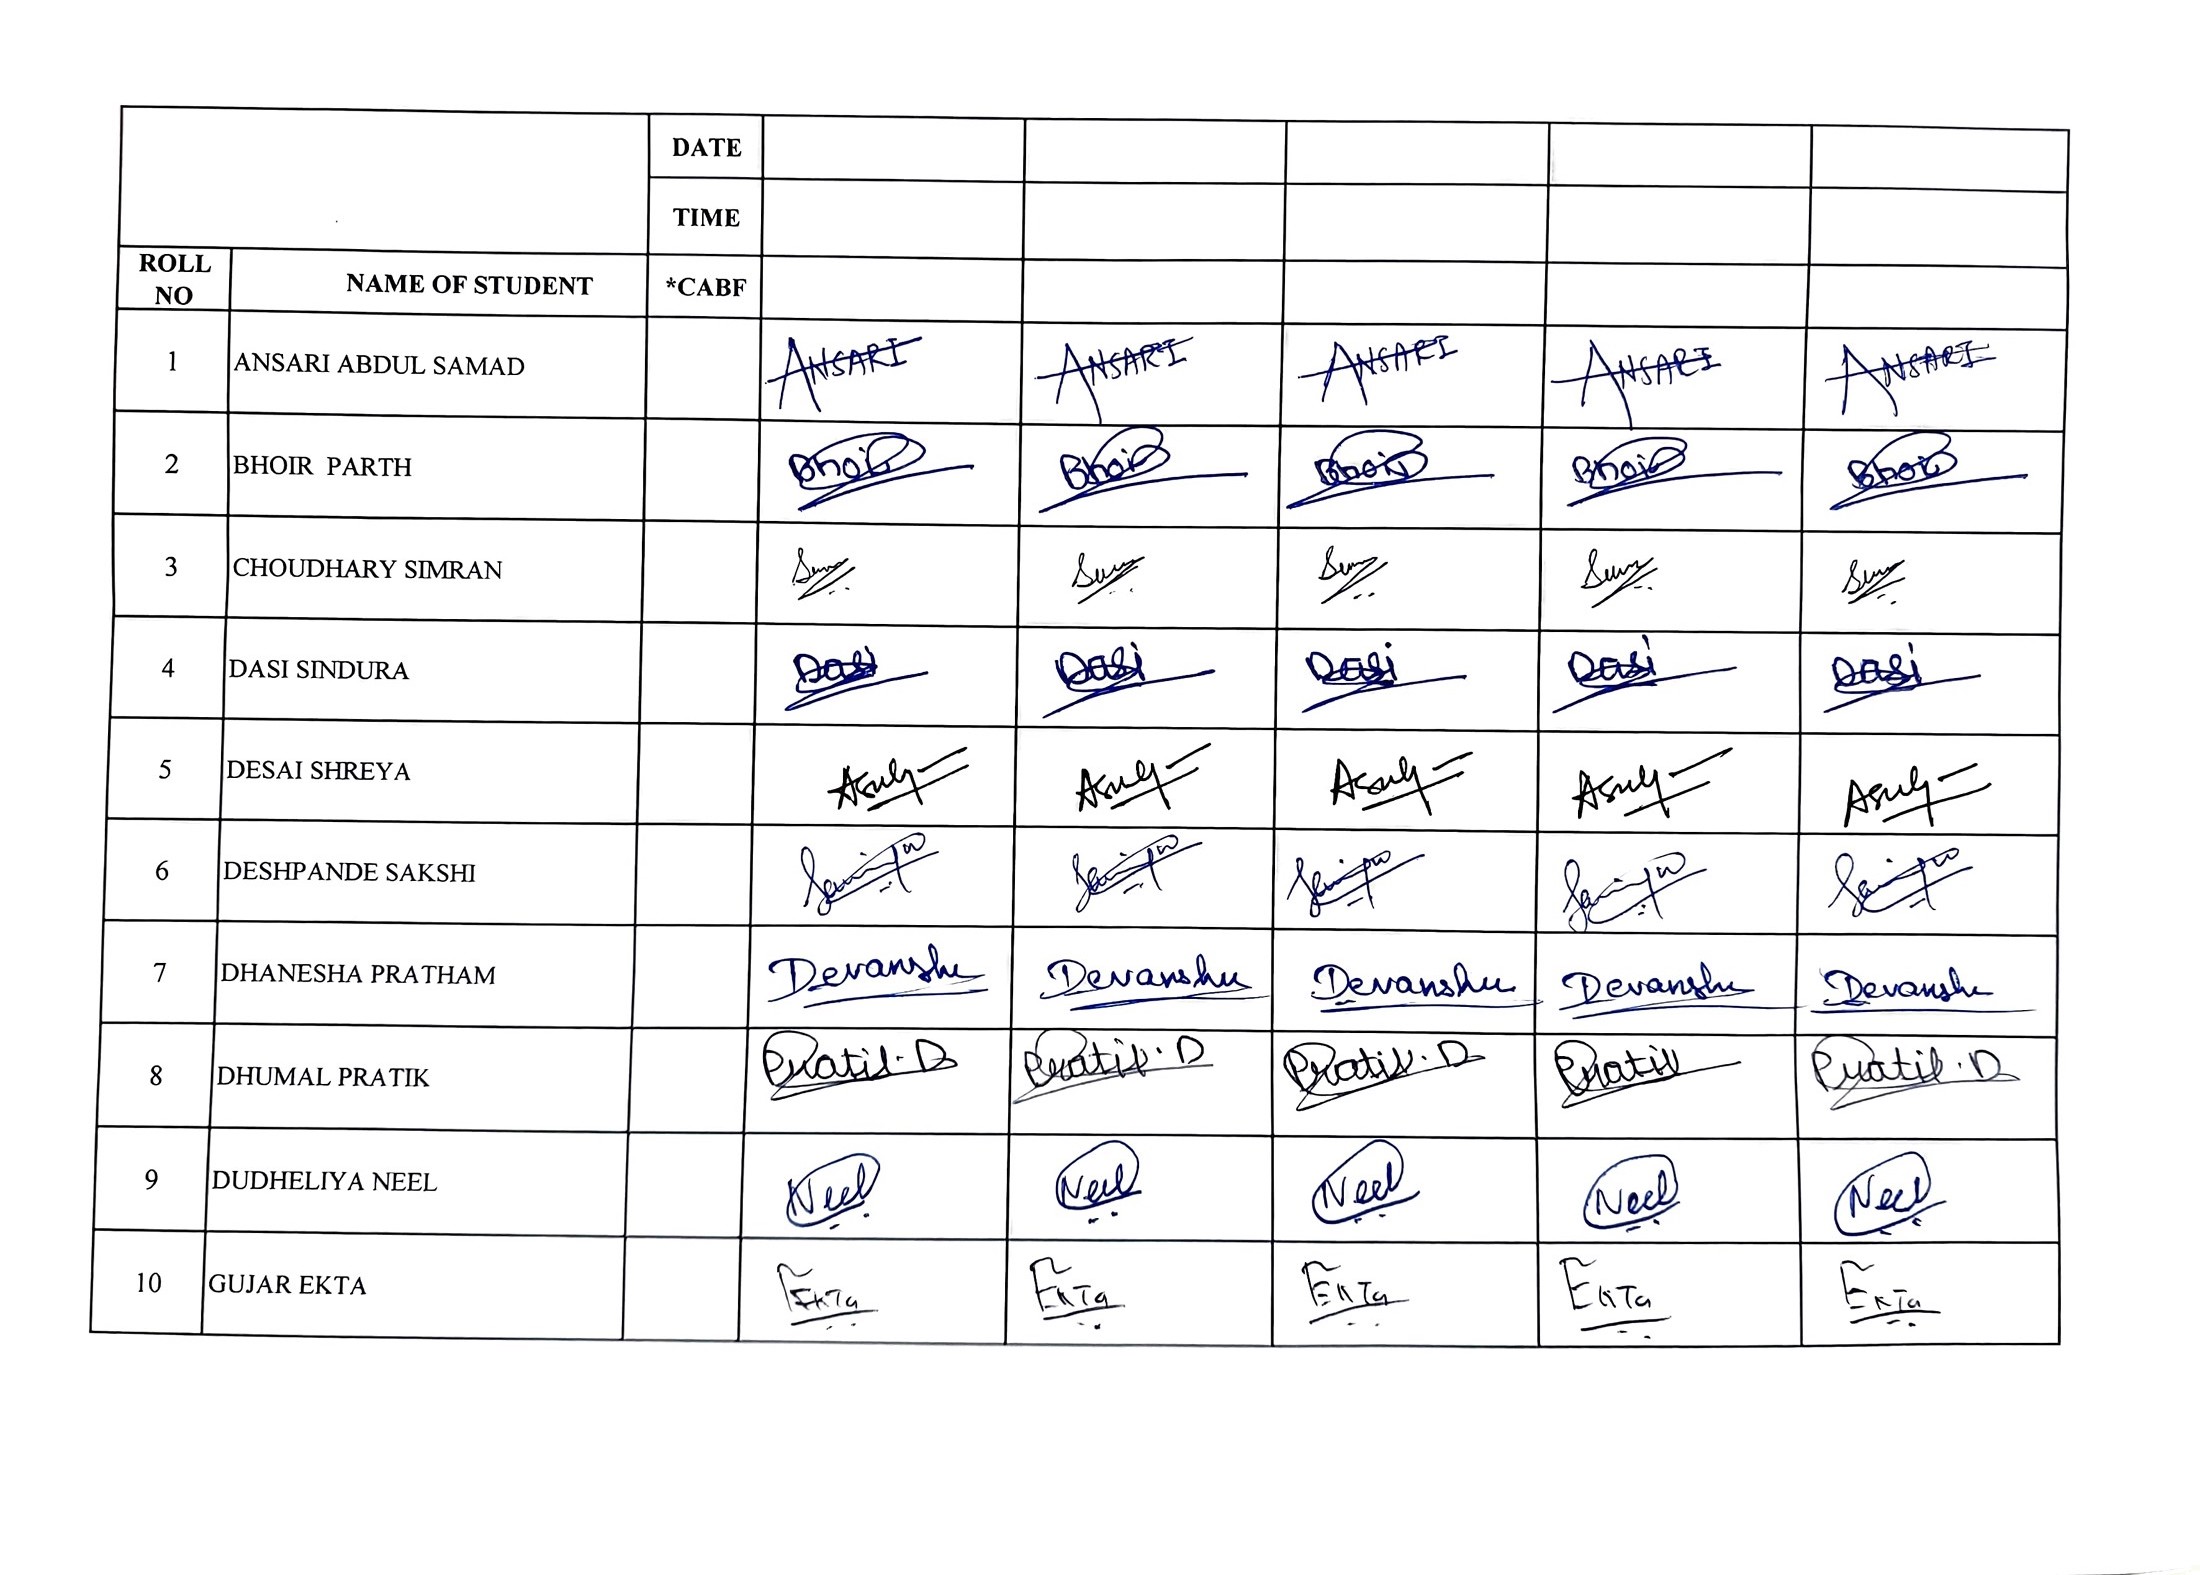 DATE
TIME
ROLL NO NAME OF STUDENT *CABF
1 ANSARI ABDUL SAMAD ANSARI ANSARI ANSARI ANSARI ANSARI
2 BHOIR PARTH Bhoir Bhoir Bhoir Bhoir Bhoir
3 CHOUDHARY SIMRAN
4 DASI SINDURA Dasi Dasi Dasi Dasi Dasi
5 DESAI SHREYA
6 DESHPANDE SAKSHI
7 DHANESHA PRATHAM Devanshu Devanshu Devanshu Devanshu Devanshu
8 DHUMAL PRATIK Pratik.D Pratik.D Pratik.D Pratik Pratik.D
9 DUDHELIYA NEEL Neel Neel Neel Neel Neel
10 GUJAR EKTA EKTa EKTa EKTa EKTa EKTa